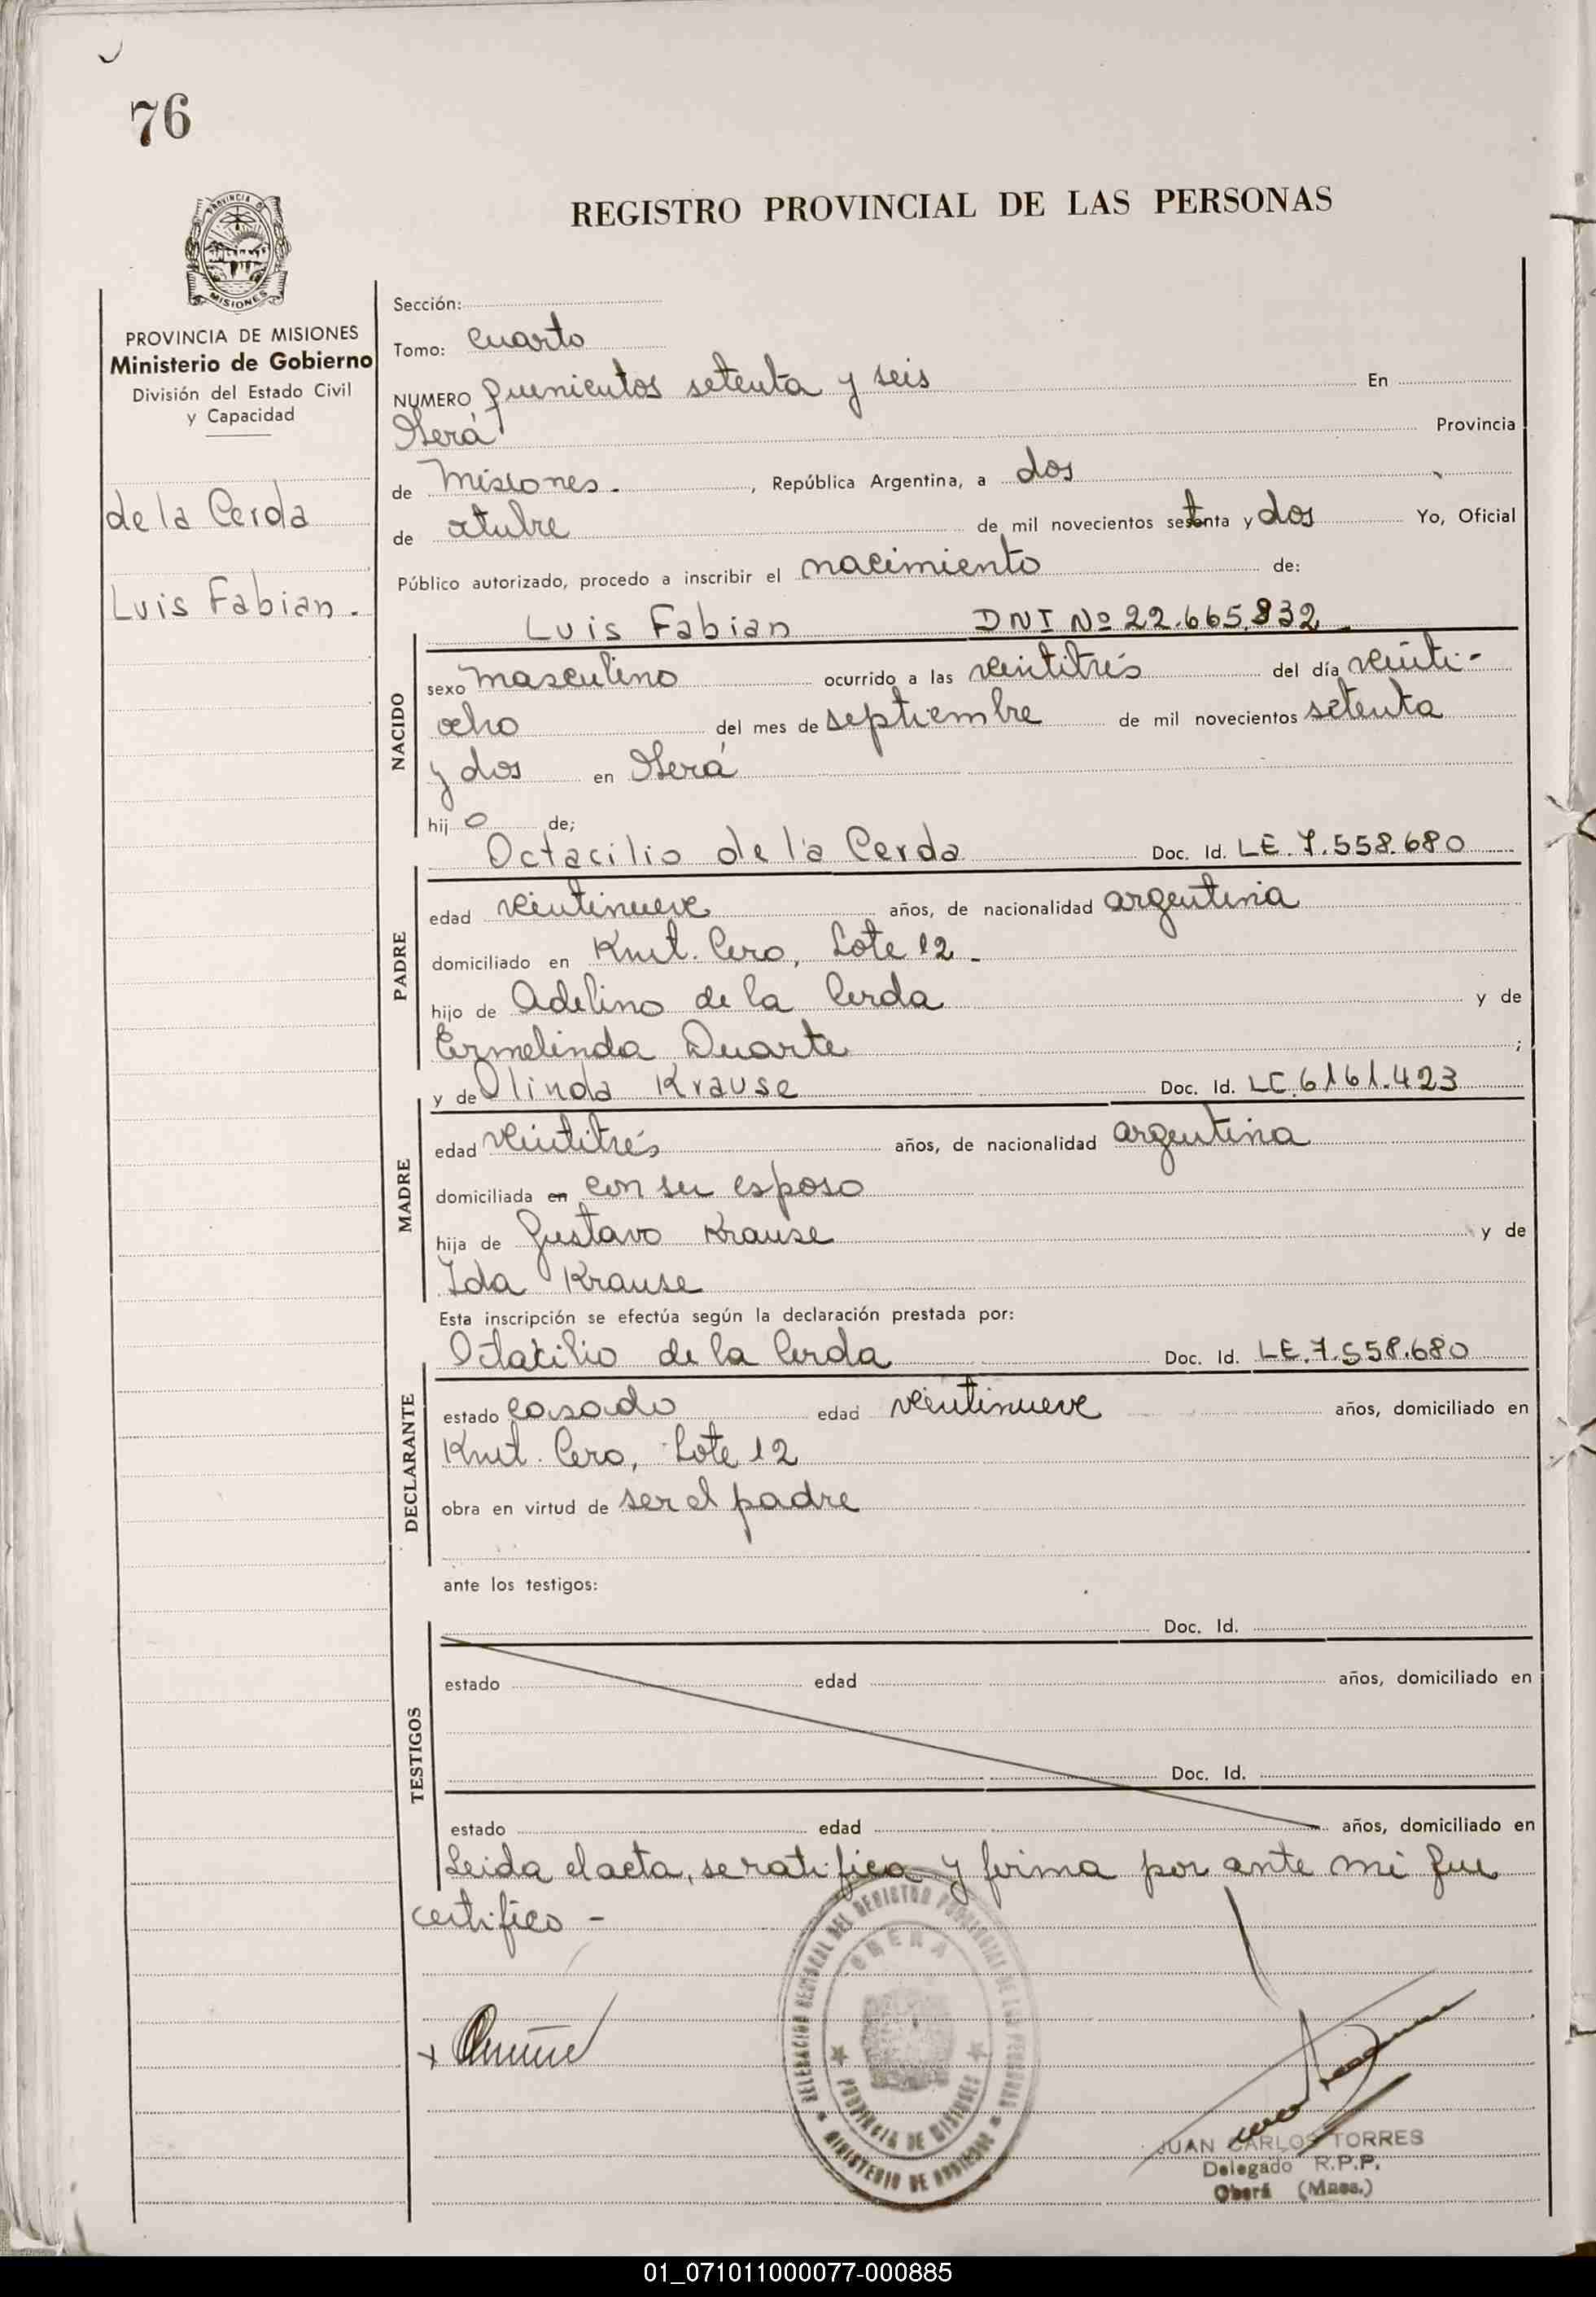 76
PROVINCIA DE
MISIONES
REGISTRO PROVINCIAL DE LAS PERSONAS
PROVINCIA DE MISIONES
Ministerio de Gobierno
División del Estado Civil
y Capacidad
de la Cerda
Luis Fabian.
Sección:
Tomo: Cuarto
NUMERO quinientos setenta y seis En
Oberá Provincia
de Misiones. , República Argentina, a dos
de octubre de mil novecientos setenta y dos Yo, Oficial
Público autorizado, procedo a inscribir el nacimiento de:
Luis Fabian DNI Nº 22.665.832
NACIDO
sexo masculino ocurrido a las veintitrés del día veinti-
ocho del mes de septiembre de mil novecientos setenta
y dos en Oberá
hij o de;
Octacilio de la Cerda Doc. Id. LE. 7.558.680
PADRE
edad veintinueve años, de nacionalidad argentina
domiciliado en Kmt. Cero, Lote 12 -
hijo de Adelino de la Cerda y de
Ermelinda Duarte ;
y de Olinda Krause Doc. Id. LC. 6161.423
MADRE
edad veintitrés años, de nacionalidad argentina
domiciliada en con su esposo
hija de Gustavo Krause y de
Ida Krause
Esta inscripción se efectúa según la declaración prestada por:
Octacilio de la Cerda Doc. Id. LE. 7.558.680
DECLARANTE
estado casado edad veintinueve años, domiciliado en
Kmt. Cero, Lote 12
obra en virtud de ser el padre
ante los testigos:
Doc. Id.
TESTIGOS
estado edad años, domiciliado en
Doc. Id.
estado edad años, domiciliado en
Leida el acta, se ratifica y firma por ante mi que
certifico -
DELEGACION REGIONAL DEL REGISTRO PROVINCIAL DE LAS PERSONAS
OBERA
PROVINCIA DE MISIONES
MINISTERIO DE GOBIERNO
JUAN CARLOS TORRES
Delegado R.P.P.
Oberá (Mnes.)
01_071011000077-000885